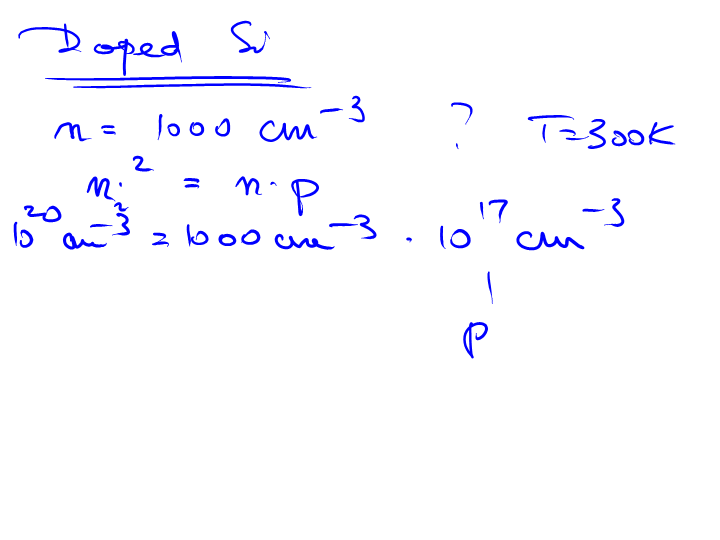 Doped Si
n = 1000 cm⁻³ ? T=300K
nᵢ² = n · p
10²⁰ cm⁻³² = 1000 cm⁻³ · 10¹⁷ cm⁻³
p